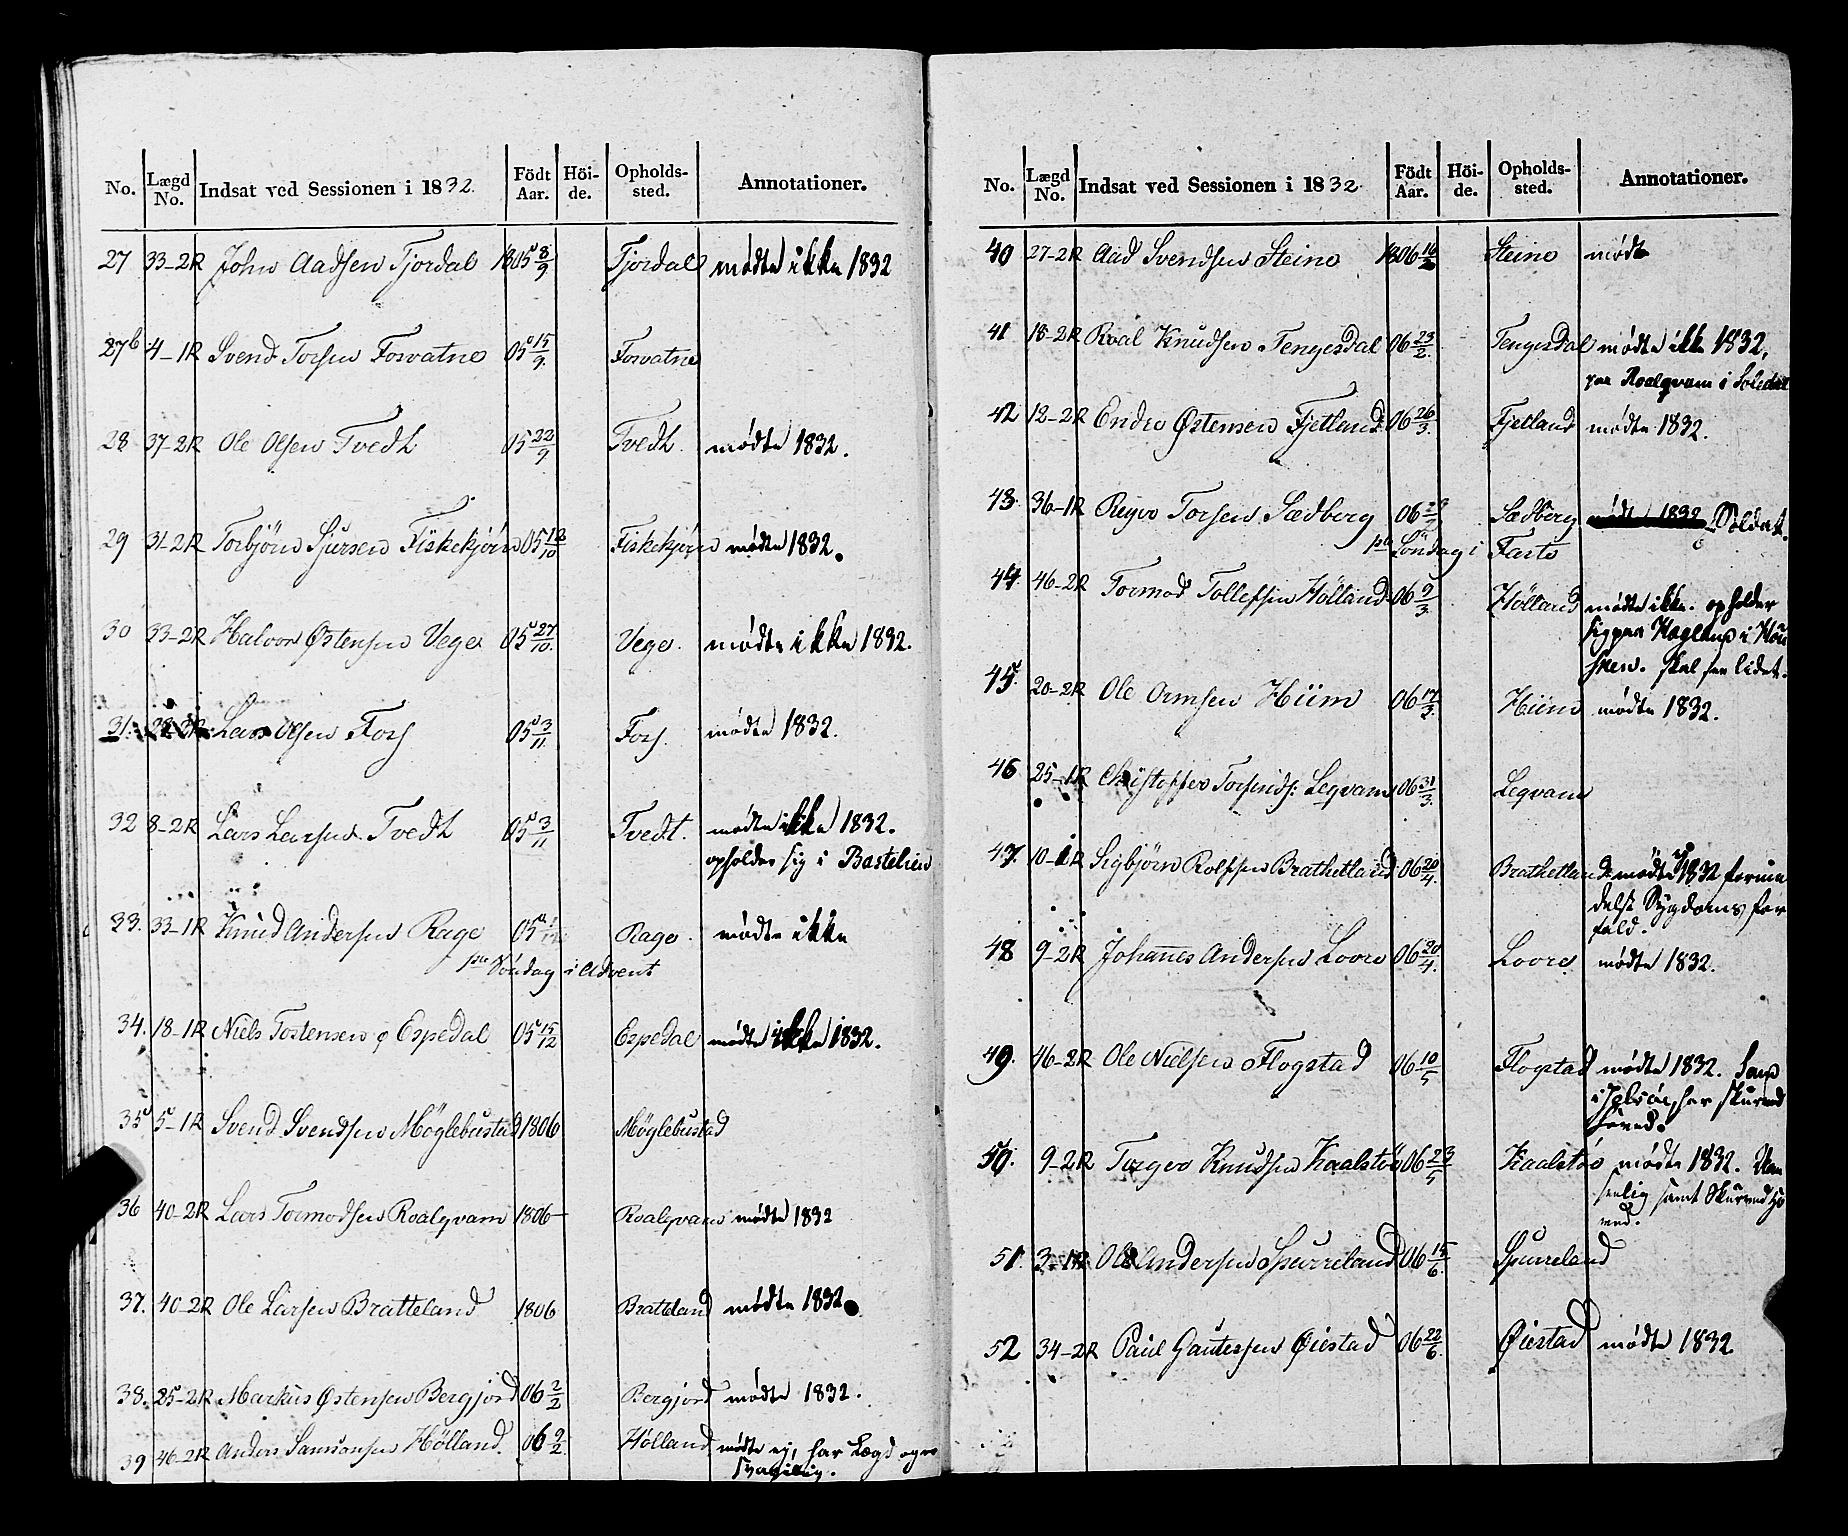 No. Lægd No. Indsat ved Sessionen i 1832. Födt Aar. Höi-de. Opholds-sted. Annotationer.
27 33-2R John Aadsen Tjordal 1805 8/9 Tjordal mødte ikke 1832
27b 4-1R Svend Torsen Forvatne 05 15/9. Forvatne
28 37-2R Ole Olsen Tvedt 05 22/9 Tvedt. mødte 1832.
29 31-2R Torbjörn Sjursen Fiskekjörn 05 12/10 Fiskekjörn mødte 1832.
30 33-2R Halvor Østensen Vege 05 27/10. Vege. mødte ikke 1832.
31. Lars Olsen Fors 05 3/11 Fors. mødte 1832.
32 8-2R Lars Larsen Tvedt 05 3/11 Tvedt. mødte ikke 1832.
opholder sig i Bastelien
33. 33-1R Knud Andersen Rage 05 Rage. mødte ikke
i Advent
34. 18-1R Niels Tostensen Espedal 05 15/12 Espedal mødte ikke 1832.
35 5-1R Svend Svendsen Møglebustad 1806 Møglebustad
36 40-2R Lars Tormodsen Roalqvam 1806 Roalqvam mødte 1832
37. 40-2R Ole Larsen Bratteland 1806 Bratteland mødte 1832.
38. 25-2R Markus Østensen Bergjord 06 2/2 Bergjord mødte 1832.
39 46-2R Anders Samsonsen Hölland. 06 9/2. Hölland. mødte ej, har Lægd og er
svagelig.
No. Lægd No. Indsat ved Sessionen i 1832. Födt Aar. Höi-de. Opholds-sted. Annotationer.
40 27-2R Aad Svendsen Steine 1806 16/2 Steine mødt
41 18-2R Roal Knudsen Tengesdal 06 23/2. Tengesdal mødte ikke 1832.
paa Roalqvam i Suledal
42 12-2R Endre Østensen Fjetland 06 26/3. Fjetland mødte 1832.
43. 36-1R Torsen Sædberg 06 Sædberg mødt 1832 Soldat.
i Faste
44. 46-2R Tormod Tollefsen Hölland 06 9/3 Hölland mødte ikke. opholder
sig paa
skal see lidet.
45. 20-2R Ole Ormsen Hiim 06 17/3. Hiim mødte 1832.
46 25-1R Christopher Torfinds: Leqvam 06 31/3. Leqvam
47. 10-1R Sigbjörn Rolfsen Brathetland 06 20/4. Brathetland mødte ej 1832 formedelst Sygdoms forfald.
48 9-2R Johannes Andersen Lovre 06 20/4. Lovre mødte 1832.
49. 46-2R Ole Nielsen Flogstad 06 10/5 Flogstad mødte 1832.
har skurved
hoved.
50. 9-2R Knudsen Kaalstöe 06 23/5 Kaalstöe mødte 1832.
samt Skurved ho
ved.
51. 3-1R Ole Andersen Spurreland 06 15/6. Spurreland
52 34-2R Paul Gautesen Øiestad 06 22/6. Øiestad mødte 1832